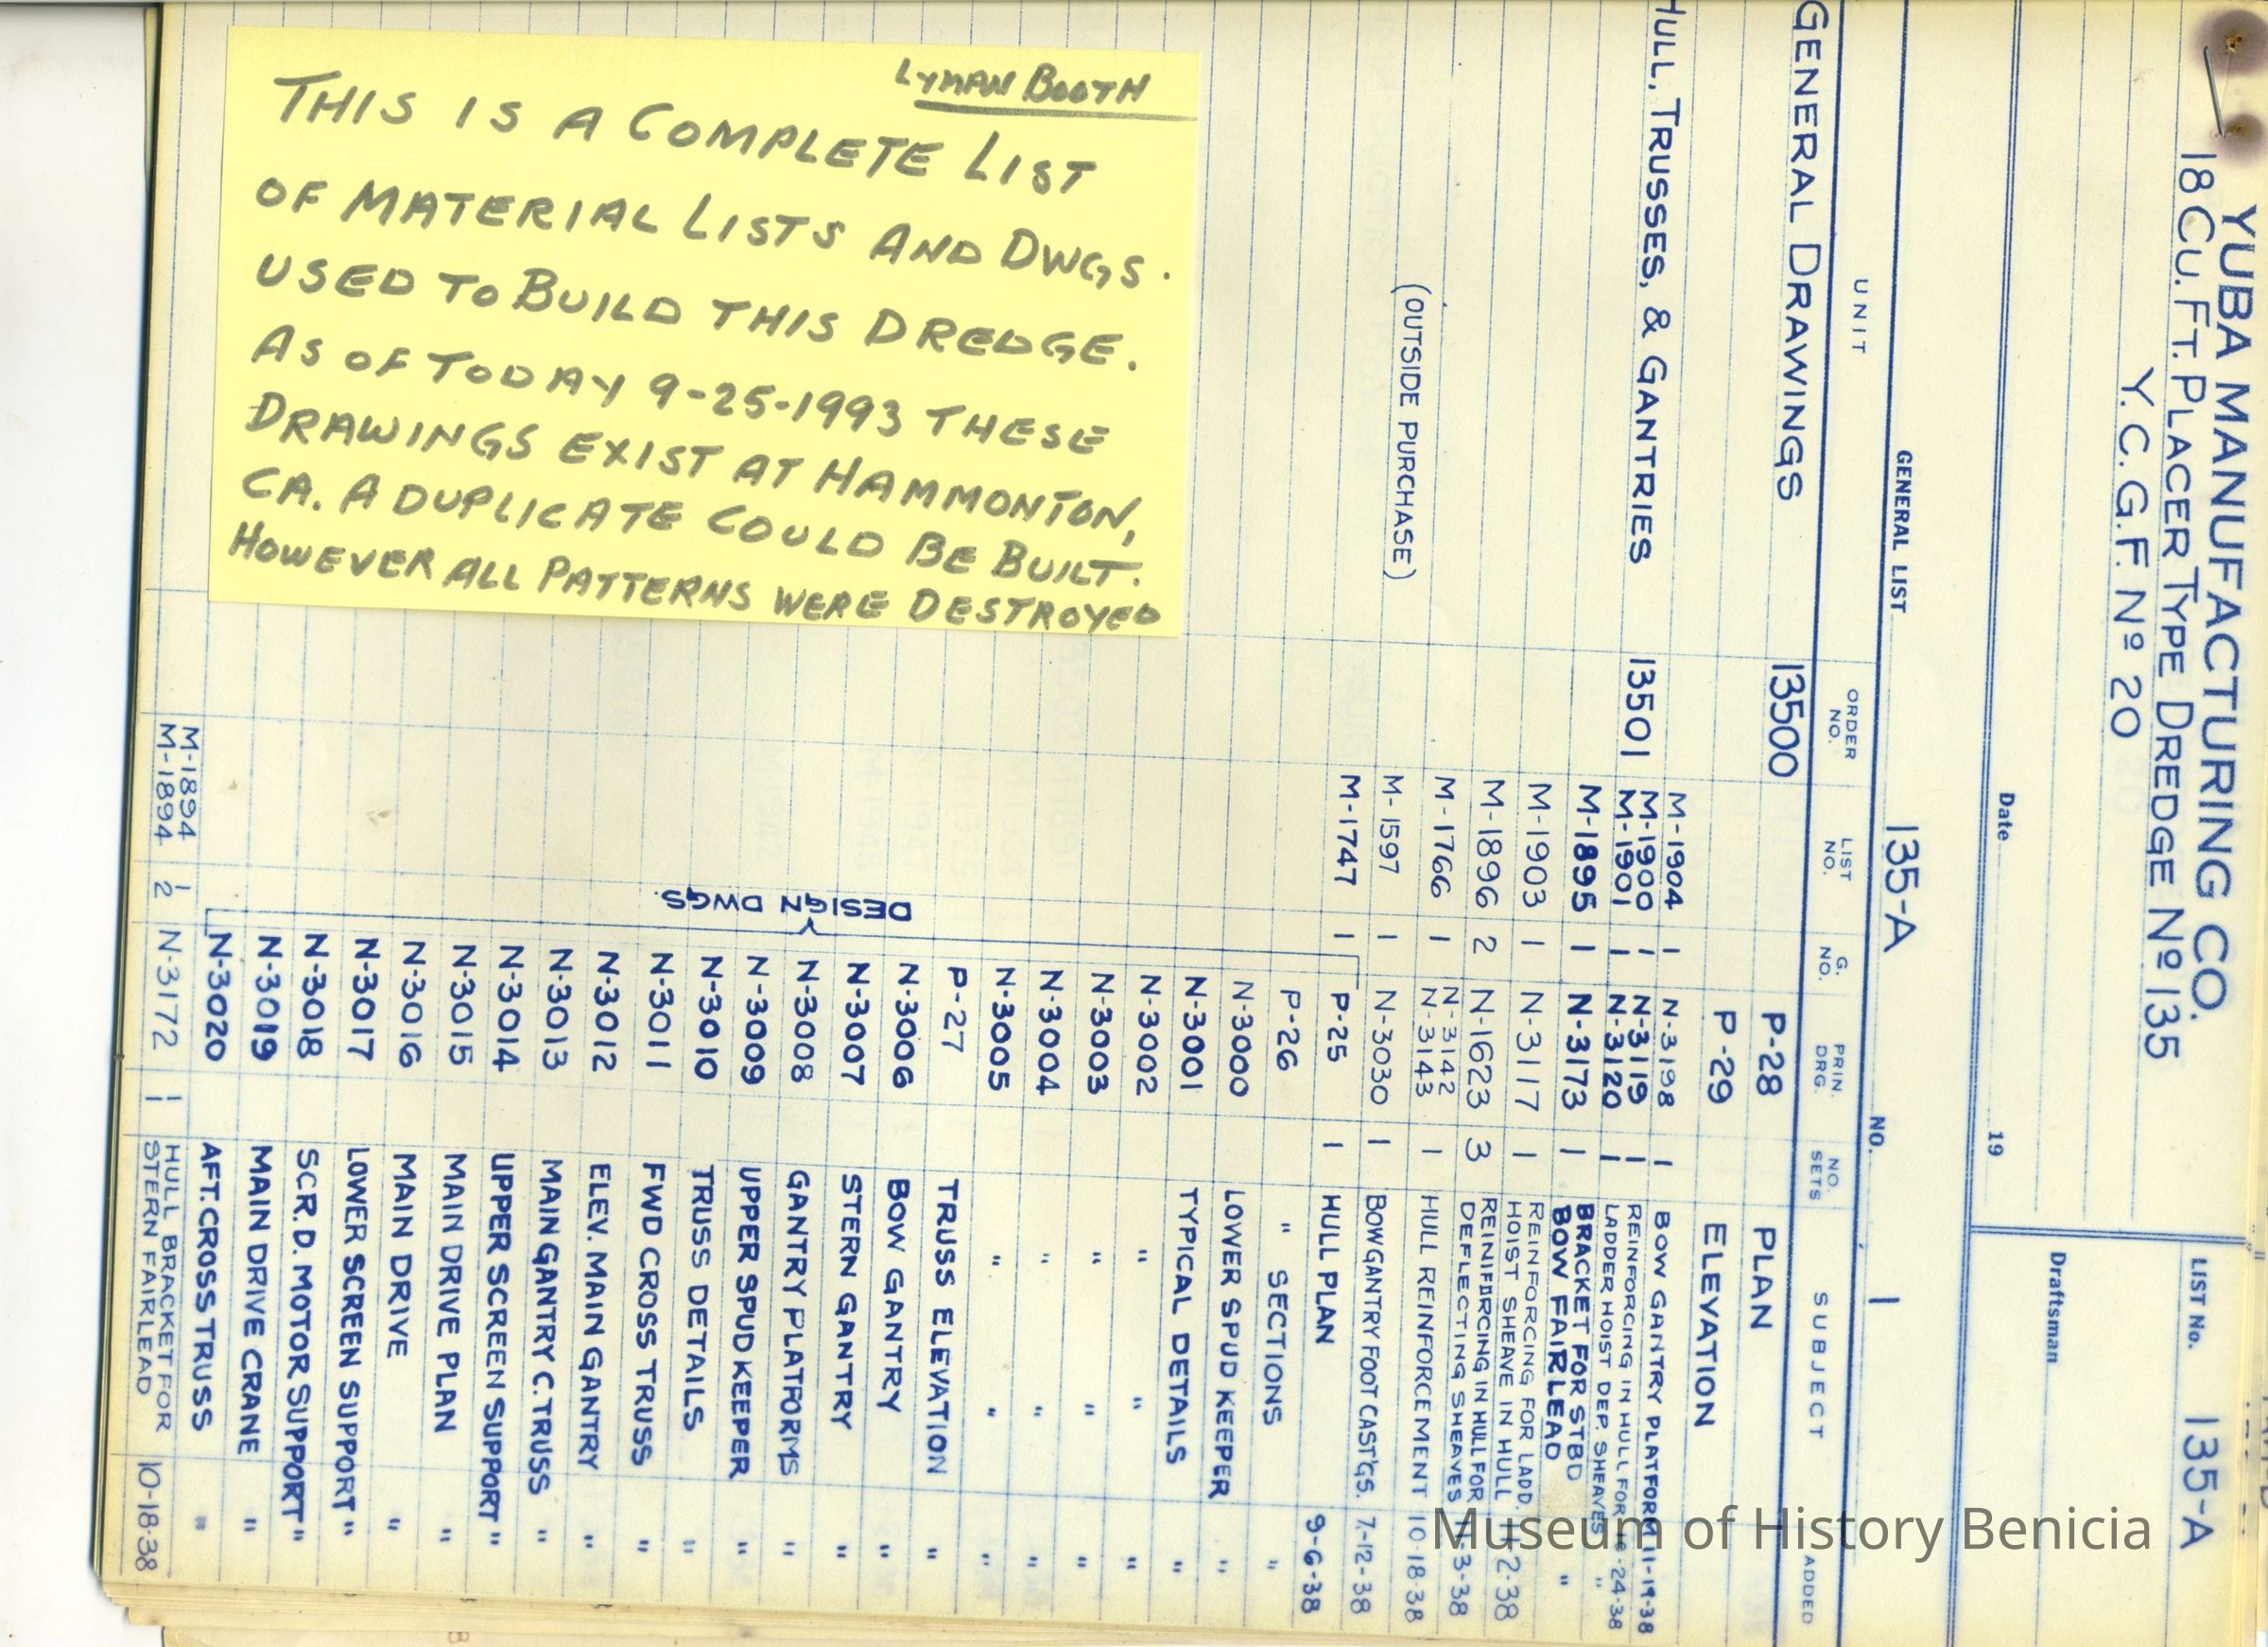 LYMAN BOOTH
THIS IS A COMPLETE LIST
OF MATERIAL LISTS AND DWGS.
USED TO BUILD THIS DREDGE.
AS OF TODAY 9-25-1993 THESE
DRAWINGS EXIST AT HAMMONTON,
CA. A DUPLICATE COULD BE BUILT.
HOWEVER ALL PATTERNS WERE DESTROYED
YUBA MANUFACTURING CO.
18 CU. FT. PLACER TYPE DREDGE Nº 135
Y. C. G. F. Nº 20
LIST No. 135-A
Date 19
Draftsman
GENERAL LIST 135-A NO. 1
UNIT ORDER NO. LIST NO. G. NO. PRIN. DRG. NO. SETS SUBJECT ADDED
GENERAL DRAWINGS 13500 P-28 PLAN
P-29 ELEVATION
M-1904 1 N-3198 1 BOW GANTRY PLATFORM 11-19-38
HULL, TRUSSES, & GANTRIES 13501 M-1900 1 N-3119 1 REINFORCING IN HULL FOR
M-1901 1 N-3120 1 LADDER HOIST DEP. SHEAVES -24-38
M-1895 1 N-3173 1 BRACKET FOR STBD "
BOW FAIRLEAD "
M-1903 1 N-3117 1 REINFORCING FOR LADD.
HOIST SHEAVE IN HULL 11-2-38
M-1896 2 N-1623 3 REINFORCING IN HULL FOR
DEFLECTING SHEAVES 11-3-38
M-1766 1 N-3142
N-3143 1 HULL REINFORCEMENT 10-18-38
(OUTSIDE PURCHASE) M-1597 1 N-3030 1 BOW GANTRY FOOT CAST'GS. 7-12-38
M-1747 1 P-25 1 HULL PLAN 9-6-38
P-26 " SECTIONS "
N-3000 LOWER SPUD KEEPER "
N-3001 TYPICAL DETAILS "
N-3002 " " "
N-3003 " " "
N-3004 " " "
N-3005 " " "
P-27 TRUSS ELEVATION "
N-3006 BOW GANTRY "
N-3007 STERN GANTRY "
DESIGN DWGS. N-3008 GANTRY PLATFORMS "
N-3009 UPPER SPUD KEEPER "
N-3010 TRUSS DETAILS "
N-3011 FWD CROSS TRUSS "
N-3012 ELEV. MAIN GANTRY "
N-3013 MAIN GANTRY C. TRUSS "
N-3014 UPPER SCREEN SUPPORT "
N-3015 MAIN DRIVE PLAN "
N-3016 MAIN DRIVE "
N-3017 LOWER SCREEN SUPPORT "
N-3018 SCR. D. MOTOR SUPPORT "
N-3019 MAIN DRIVE CRANE "
N-3020 AFT. CROSS TRUSS "
M-1894 1 1 HULL BRACKET FOR
M-1894 2 N-3172 1 STERN FAIRLEAD 10-18-38
Museum of History Benicia